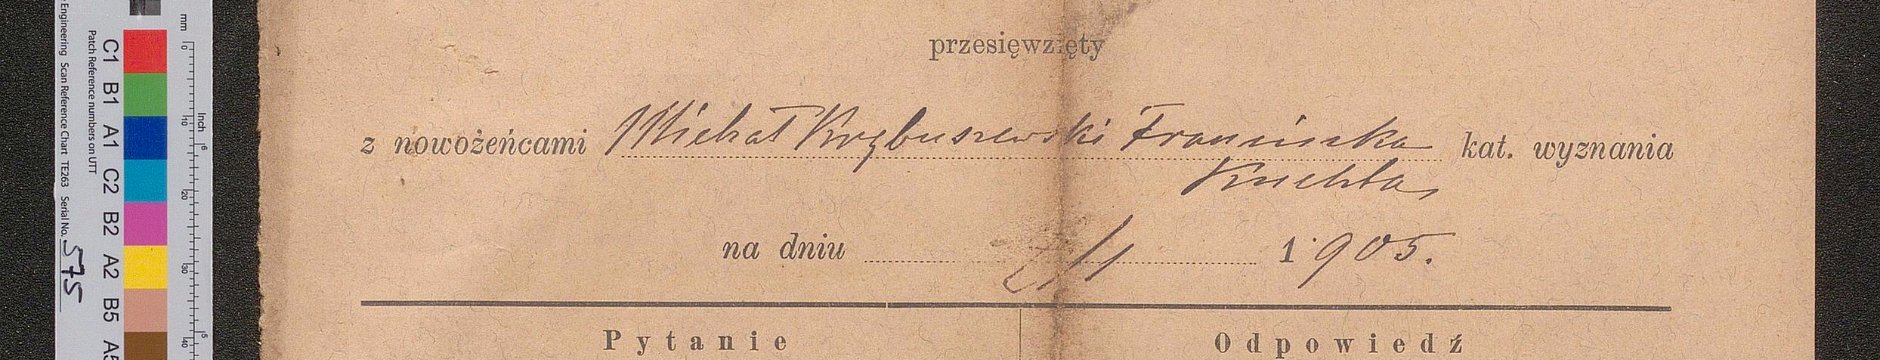 przesięwzięty
z nowożeńcami Michał Krębuszewski Franciszka kat. wyznania
Kuchta
na dniu 2/1 1905.
Pytanie Odpowiedź
Engineering Scan Reference Chart TE263 Serial No. 575
Patch Reference numbers on UTT
C1 B1 A1 C2 B2 A2 B5 A5
mm 0 10 20 30 40
Inch